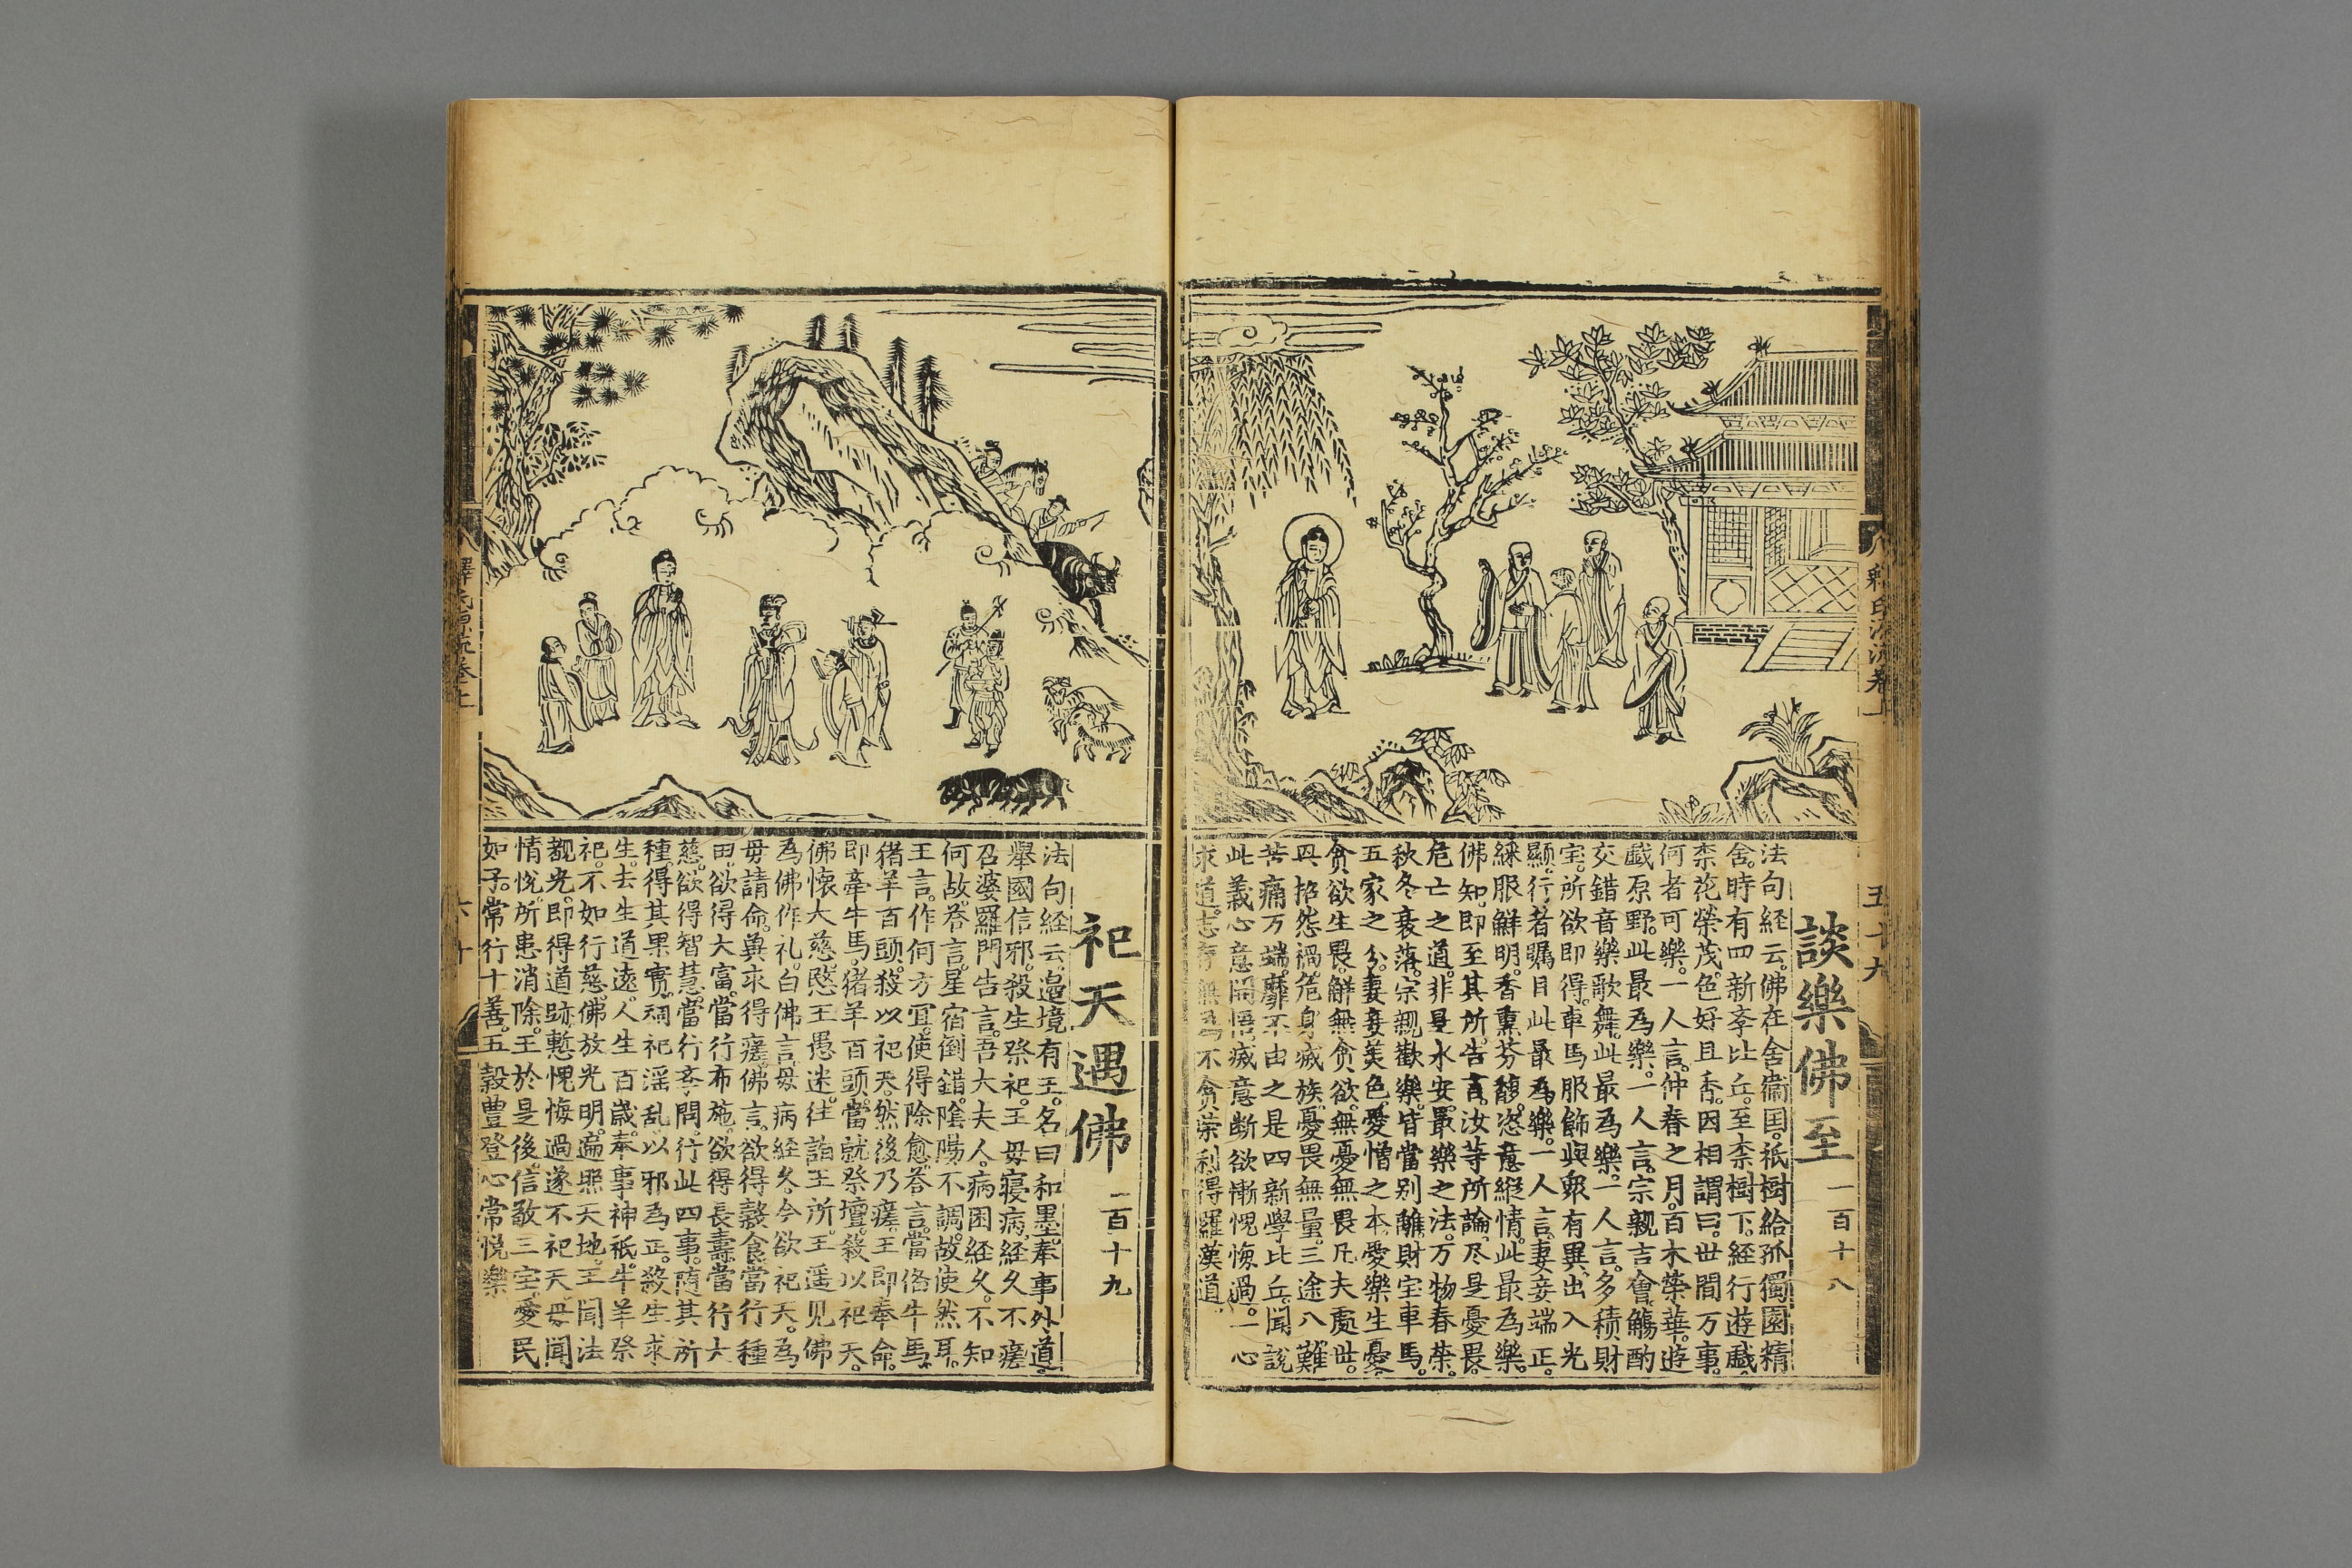 談樂佛至 一百十八
法句経云。佛在舍衞国。祇樹給孤獨園精
舍。時有四新孛比丘。至柰樹下。経行遊戯。
柰花榮茂。色好且香。因相謂曰。世間万事。
何者可樂。一人言。仲春之月。百木榮華。遊
戯原野。此最為樂。一人言。宗親吉會。觴酌
交錯。音樂歌舞。此最為樂。一人言。多積財
宝。所欲即得。車馬服飾。與衆有異。出入光
顯。行者矚目。此最為樂。一人言。妻妾端正。
綵服鮮明。香熏芬馥。恣意縱情。此最為樂。
佛知。即至其所。告言。汝等所論。尽是憂畏。
危亡之道。非是永安。最樂之法。万物春荣。
秋冬衰落。宗親歡樂。皆當别離。財宝車馬。
五家之分。妻妾美色。愛憎之本。愛樂生憂。
貪欲生畏。觧無貪欲。無憂無畏。凡夫處世。
興招怨禍。危身滅族。憂畏無量。三途八難
苦痛万端。靡不由之。是四新學比丘。聞說
此義。心意開悟。滅意断欲。慚愧悔過。一心
求道。志存無為。不貪荣利。得羅漢道。
祀天遇佛 一百十九
法句経云。邉境有王。名曰和墨。奉事外道。
舉國信邪。殺生祭祀。王毋寝病。経久不瘥
召婆羅門告言。吾大夫人。病困経久。不知
何故。荅言。星宿倒錯。陰陽不調。故使然耳。
王言。作何方冝。使得除愈。荅言。當俻牛馬。
猪羊百頭。殺以祀天。然後乃瘥。王即奉命。
即牽牛馬。猪羊百頭。當就祭壇。殺以祀天。
佛懐大慈。愍王愚迷。往詣王所。王遥见佛
為佛作礼。白佛言。毋病経久。今欲祀天。為
毋請命。兾求得瘥。佛言。欲得穀食。當行種
田。欲得大富。當行布施。欲得長壽。當行大
慈。欲得智慧。當行孛問。行此四事。随其所
種。得其果實。祠祀滛乱。以邪為正。殺生求
生。去生道逺。人生百歳。奉事神祇。牛羊祭
祀。不如行慈。佛放光明。遍照天地。王聞法
覩光。即得道跡。慙愧悔過。遂不祀天。毋聞
情悅。所患消除。王於是後。信敬三宝。愛民
如子。常行十善。五穀豊登。心常悅樂
五十九
六十
釋氏源流卷上